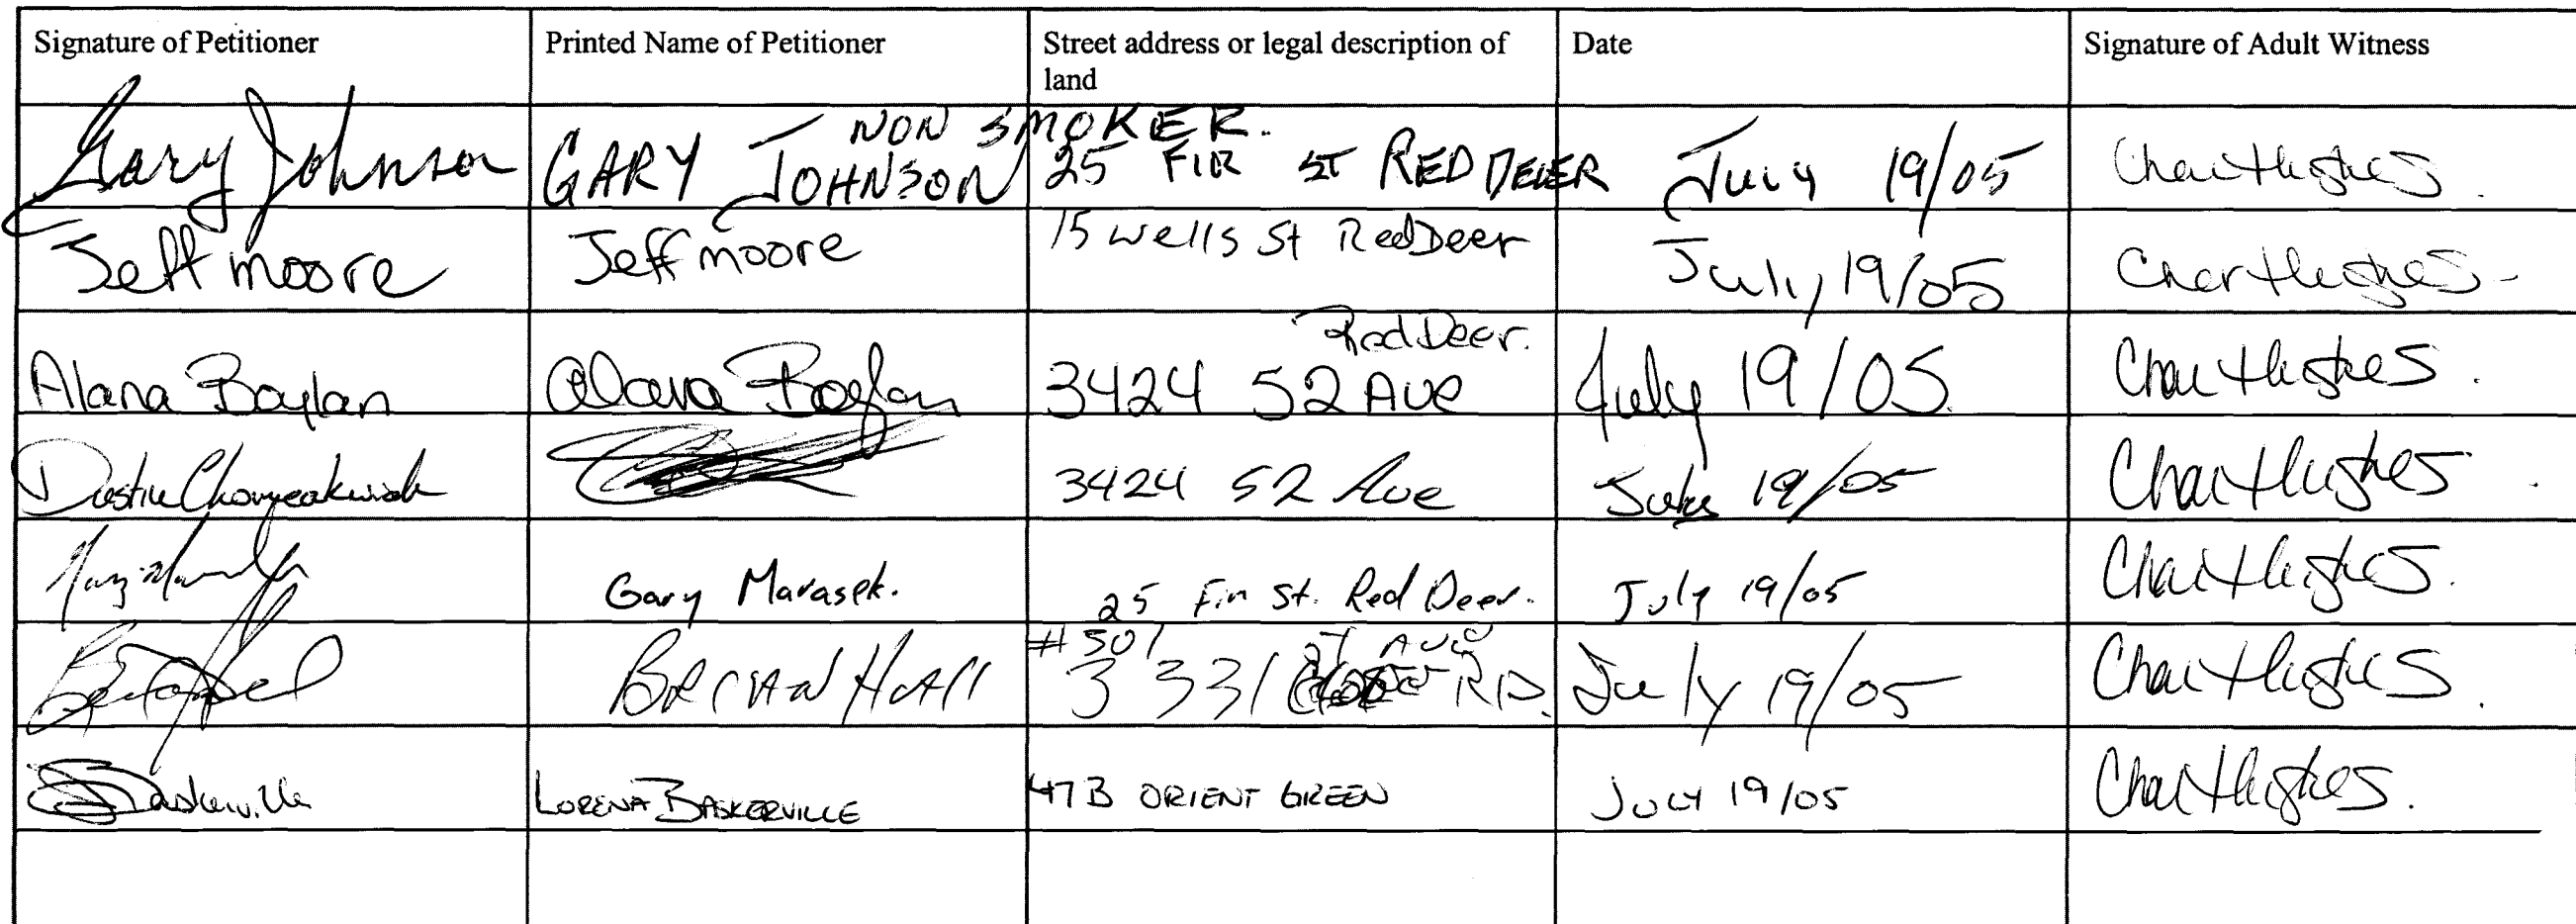 Signature of Petitioner Printed Name of Petitioner Street address or legal description of land Date Signature of Adult Witness
NON SMOKER.
Gary Johnson GARY JOHNSON 25 FIR ST RED DEEER July 19/05 Char Hughes
Jeff moore Jeff moore 15 wells St Red Deer July 19/05 Char Hughes
Red Deer.
Alana Boylan Alana Boylan 3424 52 Ave July 19/05 Char Hughes
Dustin 3424 52 Ave July 19/05 Char Hughes
Gary Marasek. 25 Fir St. Red Deer. July 19/05 Char Hughes
#501
BRIAN HALL 3331 RD. July 19/05 Char Hughes
Baskerville LORENA BASKERVILLE 47B ORIENT GREEN JULY 19/05 Char Hughes